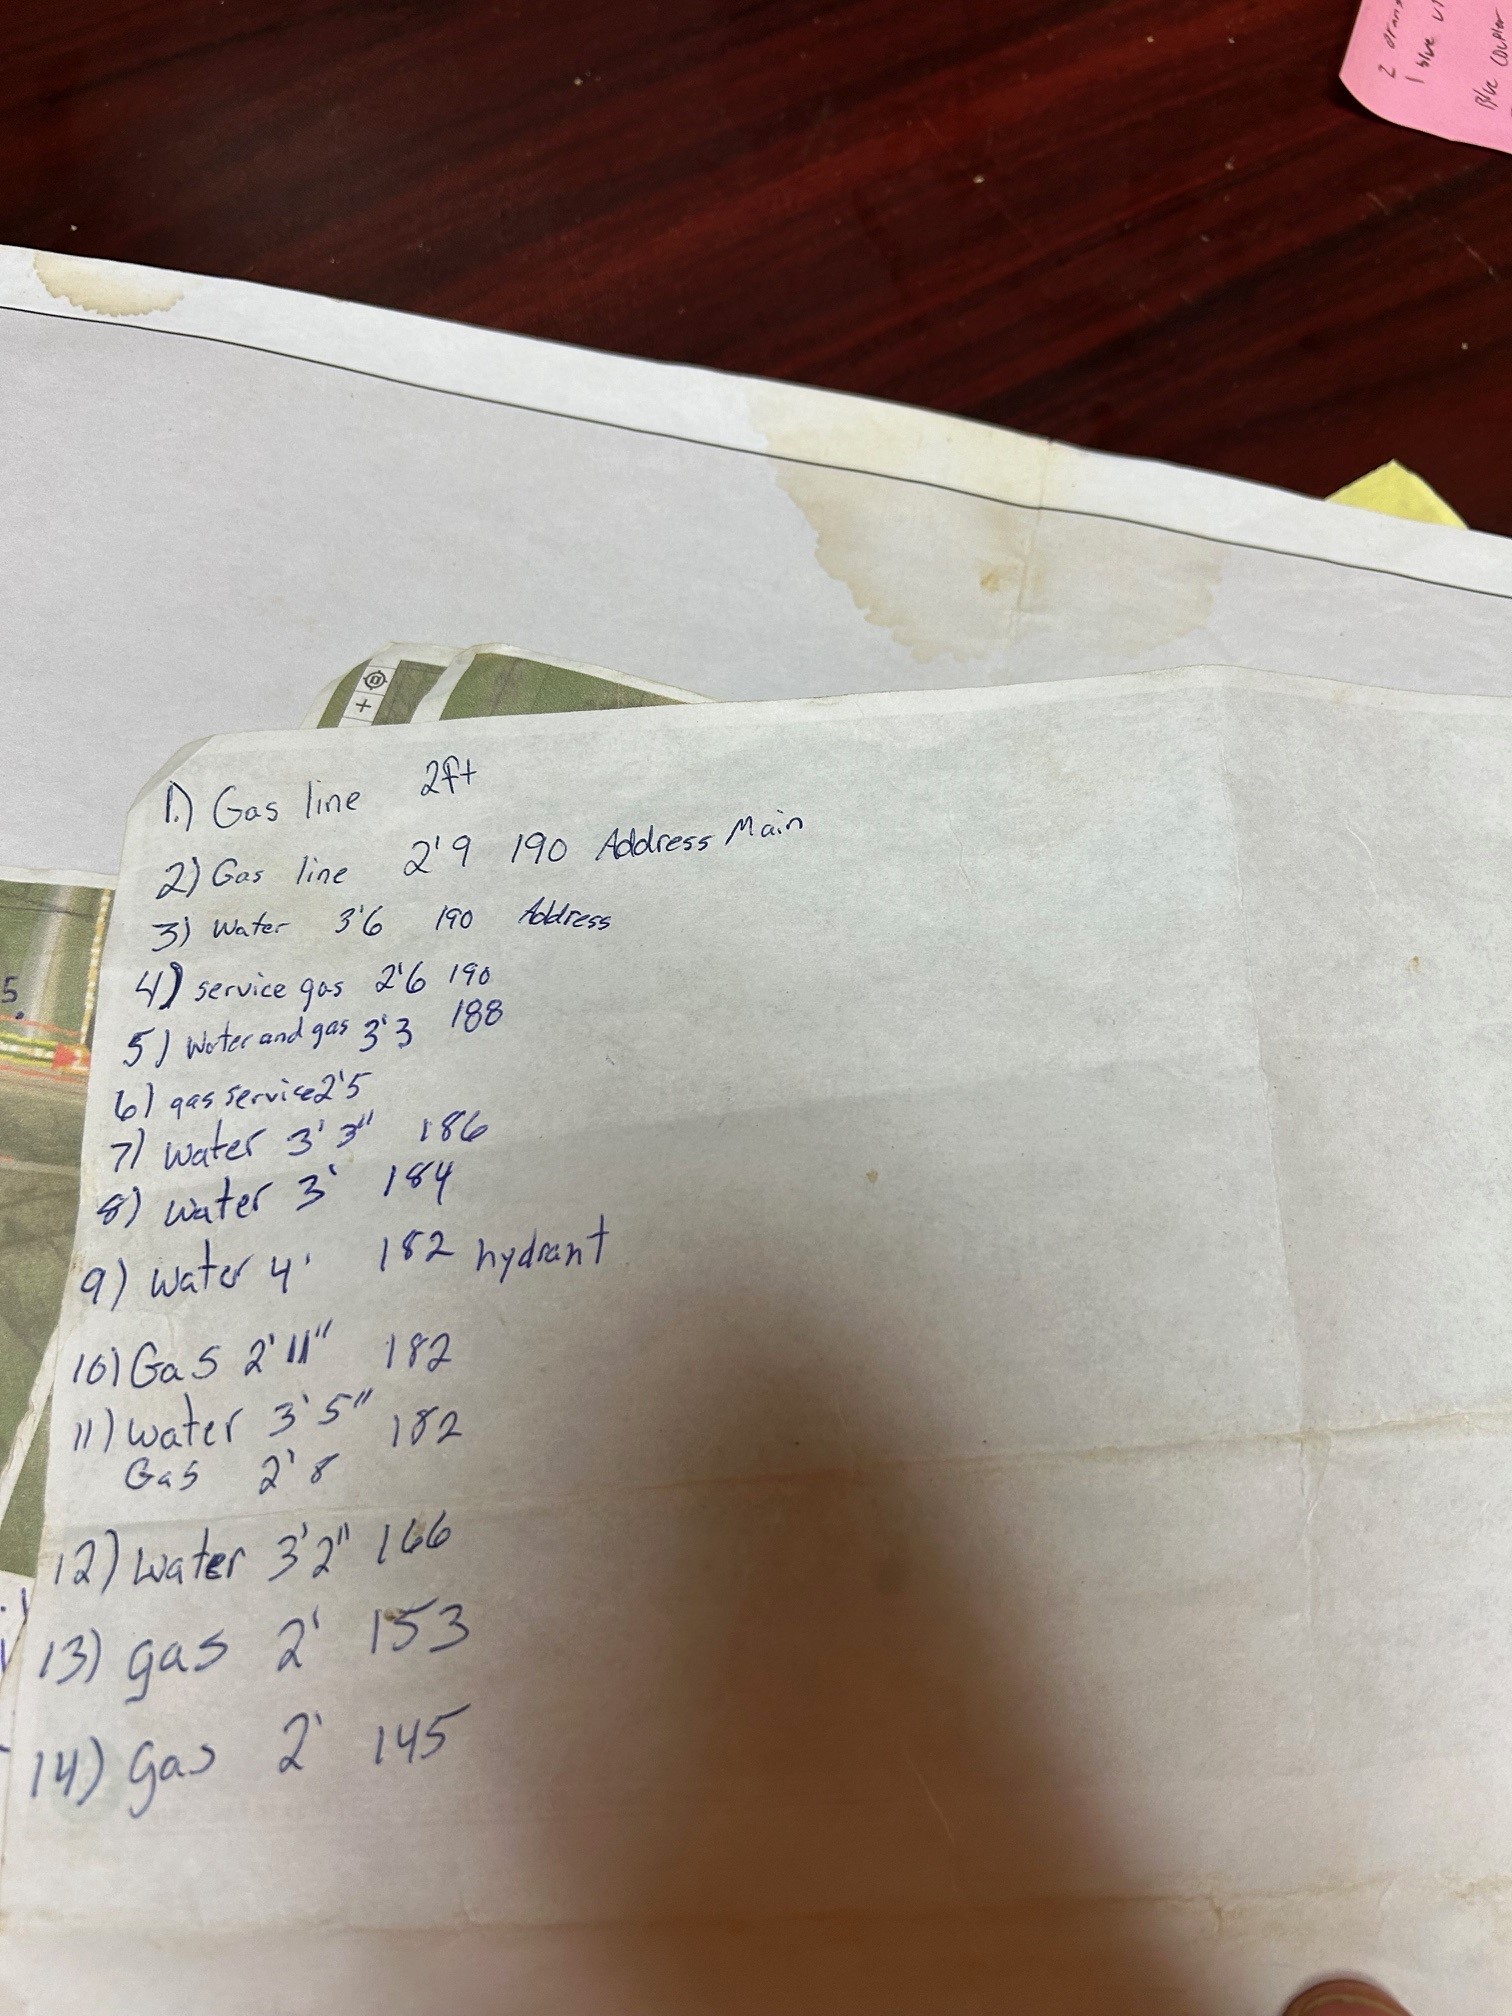 2 drans
1 blue
Blue coupler
1.) Gas line 2ft
2) Gas line 2'9 190 Address Main
3) Water 3'6 190 Address
4) service gas 2'6 190
5) Water and gas 3'3 188
6) gas service 2'5
7) water 3'3" 186
8) water 3' 184
9) water 4' 182 hydrant
10) Gas 2'11" 182
11) water 3'5" 182
Gas 2'8
12) water 3'2" 166
13) gas 2' 153
14) gas 2' 145
5.